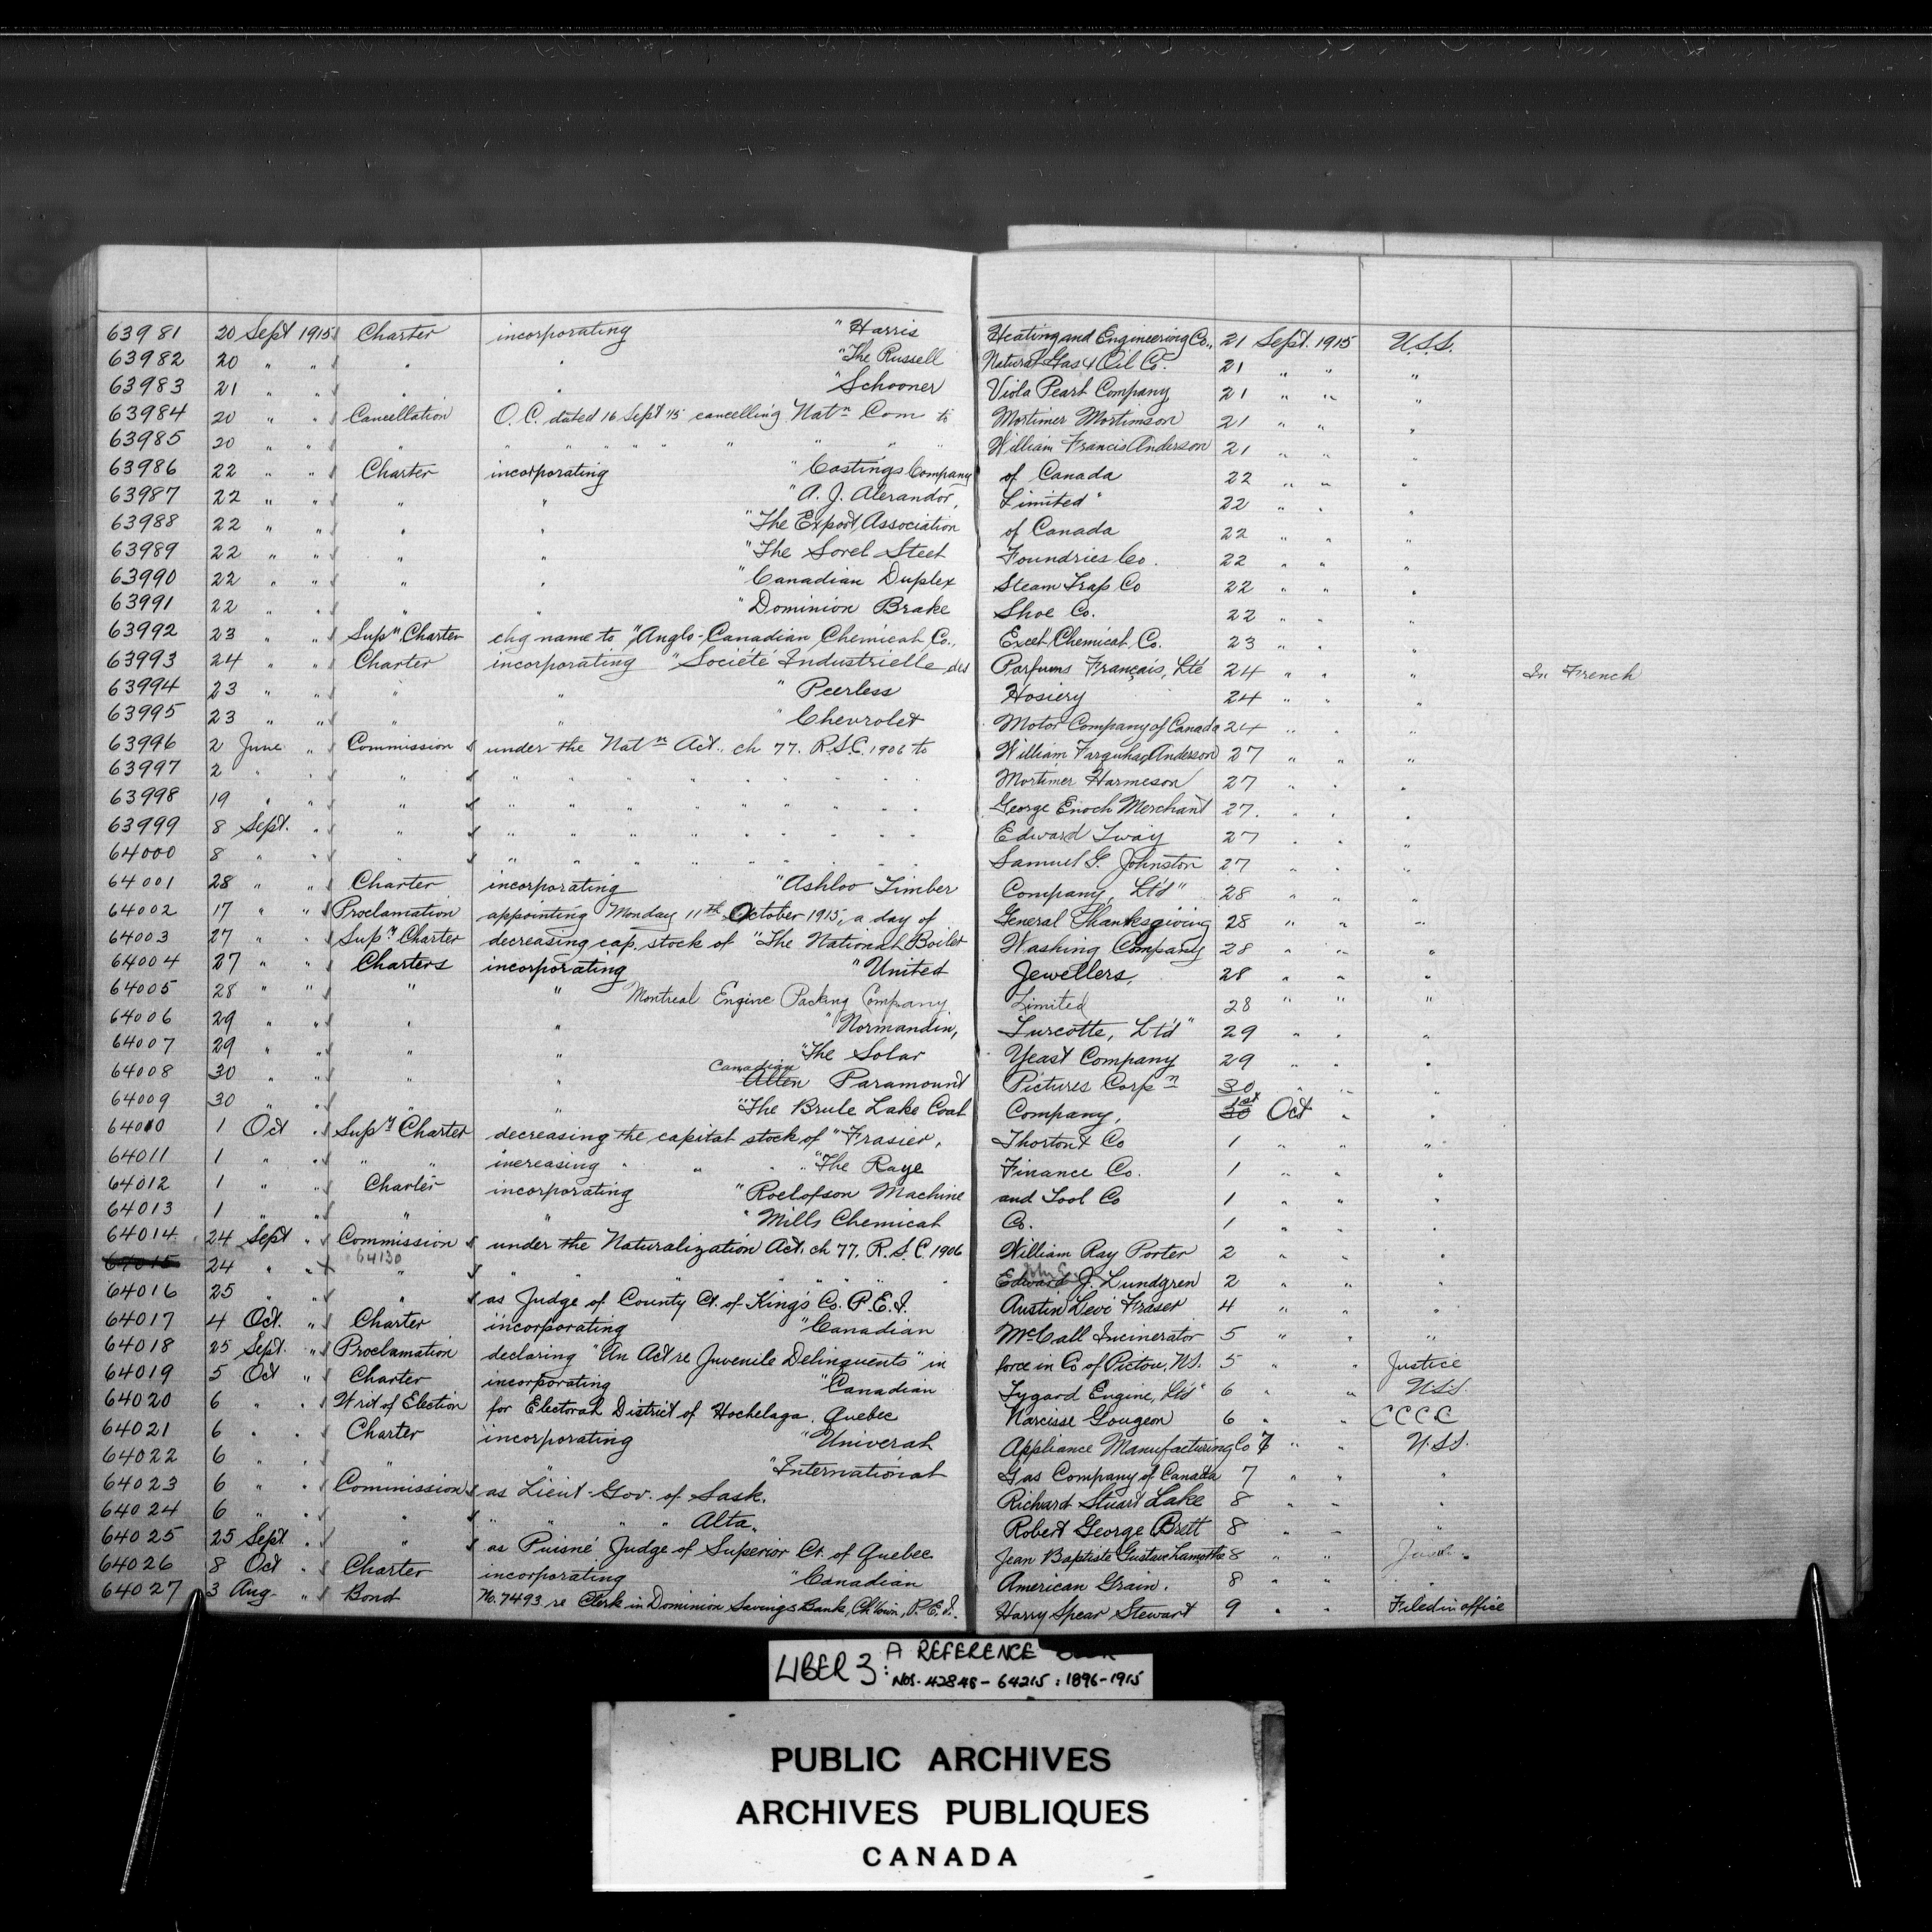 63981 20 Sept 1915 Charter incorporating "Harris Heating and Engineering Co., 21 Sept. 1915 U.S.S.
63982 20 " " " " "The Russell Natural Gas & Oil Co. 21 " " "
63983 21 " " " " "Schooner Viola Pearl Company 21 " " "
63984 20 " " Cancellation O.C. dated 16 Sept '15 cancelling Natn Com to Mortimer Mortimson 21 " " "
63985 20 " " " " " " " " " " William Francis Anderson 21 " " "
63986 22 " " Charter incorporating "Castings Company of Canada 22 " " "
63987 22 " " " " "A. J. Alexandor, Limited" 22 " " "
63988 22 " " " " "The Export Association of Canada 22 " " "
63989 22 " " " " "The Sorel Steel Foundries Co. 22 " " "
63990 22 " " " " "Canadian Duplex Steam Trap Co 22 " " "
63991 22 " " " " "Dominion Brake Shoe Co. 22 " " "
63992 23 " " Supy Charter chg name to "Anglo-Canadian Chemical Co., Excel Chemical Co. 23 " " "
63993 24 " " Charter incorporating "Société Industrielle des Parfums Français, Lté 24 " " " In French
63994 23 " " " " "Peerless Hosiery 24 " " "
63995 23 " " " " "Chevrolet Motor Company of Canada 24 " " "
63996 2 June " Commission under the Natn Act., ch 77. R.S.C. 1906 to William Farquhar Anderson 27 " " "
63997 2 " " " " " " " " " " " " Mortimer Harmeson 27 " " "
63998 19 " " " " " " " " " " " " George Enoch Merchant 27. " " "
63999 8 Sept. " " " " " " " " " " " Edward Tway 27 " " "
64000 8 " " " " " " " " " " " " Samuel G. Johnston 27 " " "
64001 28 " " Charter incorporating "Ashloo Timber Company, Ltd" 28 " " "
64002 17 " " Proclamation appointing Monday 11th October 1915, a day of General Thanksgiving 28 " " "
64003 27 " " Supy Charter decreasing cap. stock of "The National Boiler Washing Company 28 " " "
64004 27 " " Charters incorporating "United Jewellers, 28 " " "
64005 28 " " " " Montreal Engine Packing Company Limited 28 " " "
64006 29 " " " " "Normandin, Turcotte, Ltd" 29 " " "
64007 29 " " " " "The Solar Yeast Company 29 " " "
64008 30 " " " " Allen Canadian Paramount Pictures Corpn 30 " " "
64009 30 " " " " "The Brule Lake Coal Company, 30 1st Oct " "
64010 1 Oct " Supy Charter decreasing the capital stock of "Frasier, Thornton & Co 1 " " "
64011 1 " " " " increasing " " " "The Raye Finance Co. 1 " " "
64012 1 " " Charter incorporating "Roelofson Machine and Tool Co 1 " " "
64013 1 " " " " "Mills Chemical Co. 1 " " "
64014 24 Sept " Commission under the Naturalization Act, ch 77. R.S.C. 1906 William Ray Porter 2 " " "
64015 24 " " 64130 " " " " " " " " Edward John G. J. Lundgren 2 " " "
64016 25 " " " as Judge of County Ct. of King's Co. P.E.I. Austin Levi Fraser 4 " " "
64017 4 Oct. " Charter incorporating "Canadian McCall Incinerator 5 " " "
64018 25 Sept. " Proclamation declaring "An Act re Juvenile Delinquents" in force in Co of Pictou, N.S. 5 " " Justice
64019 5 Oct " Charter incorporating "Canadian Tygard Engine, Ltd" 6 " " U.S.S.
64020 6 " " Writ of Election for Electoral District of Hochelaga, Quebec Narcisse Gougeon 6 " " CCCC
64021 6 " " Charter incorporating "Univeral Appliance Manufacturing Co 7 " " U.S.S.
64022 6 " " " " "International Gas Company of Canada 7 " " "
64023 6 " " Commission as Lieut-Gov. of Sask. Richard Stuart Lake 8 " " "
64024 6 " " " " " " " Alta. Robert George Brett 8 " " "
64025 25 Sept. " " as Puisné Judge of Superior Ct. of Quebec Jean Baptiste Gustave Lamothe 8 " " Justice
64026 8 Oct " Charter incorporating "Canadian American Grain. 8 " " "
64027 3 Aug. " Bond No. 7493 re Clerk in Dominion Savings Bank, Ch'town, P.E.I. Harry Spear Stewart 9 " " Filed in office
LIBER 3: A REFERENCE BOOK
NOS. 42848 - 64215 : 1896-1915
PUBLIC ARCHIVES
ARCHIVES PUBLIQUES
CANADA